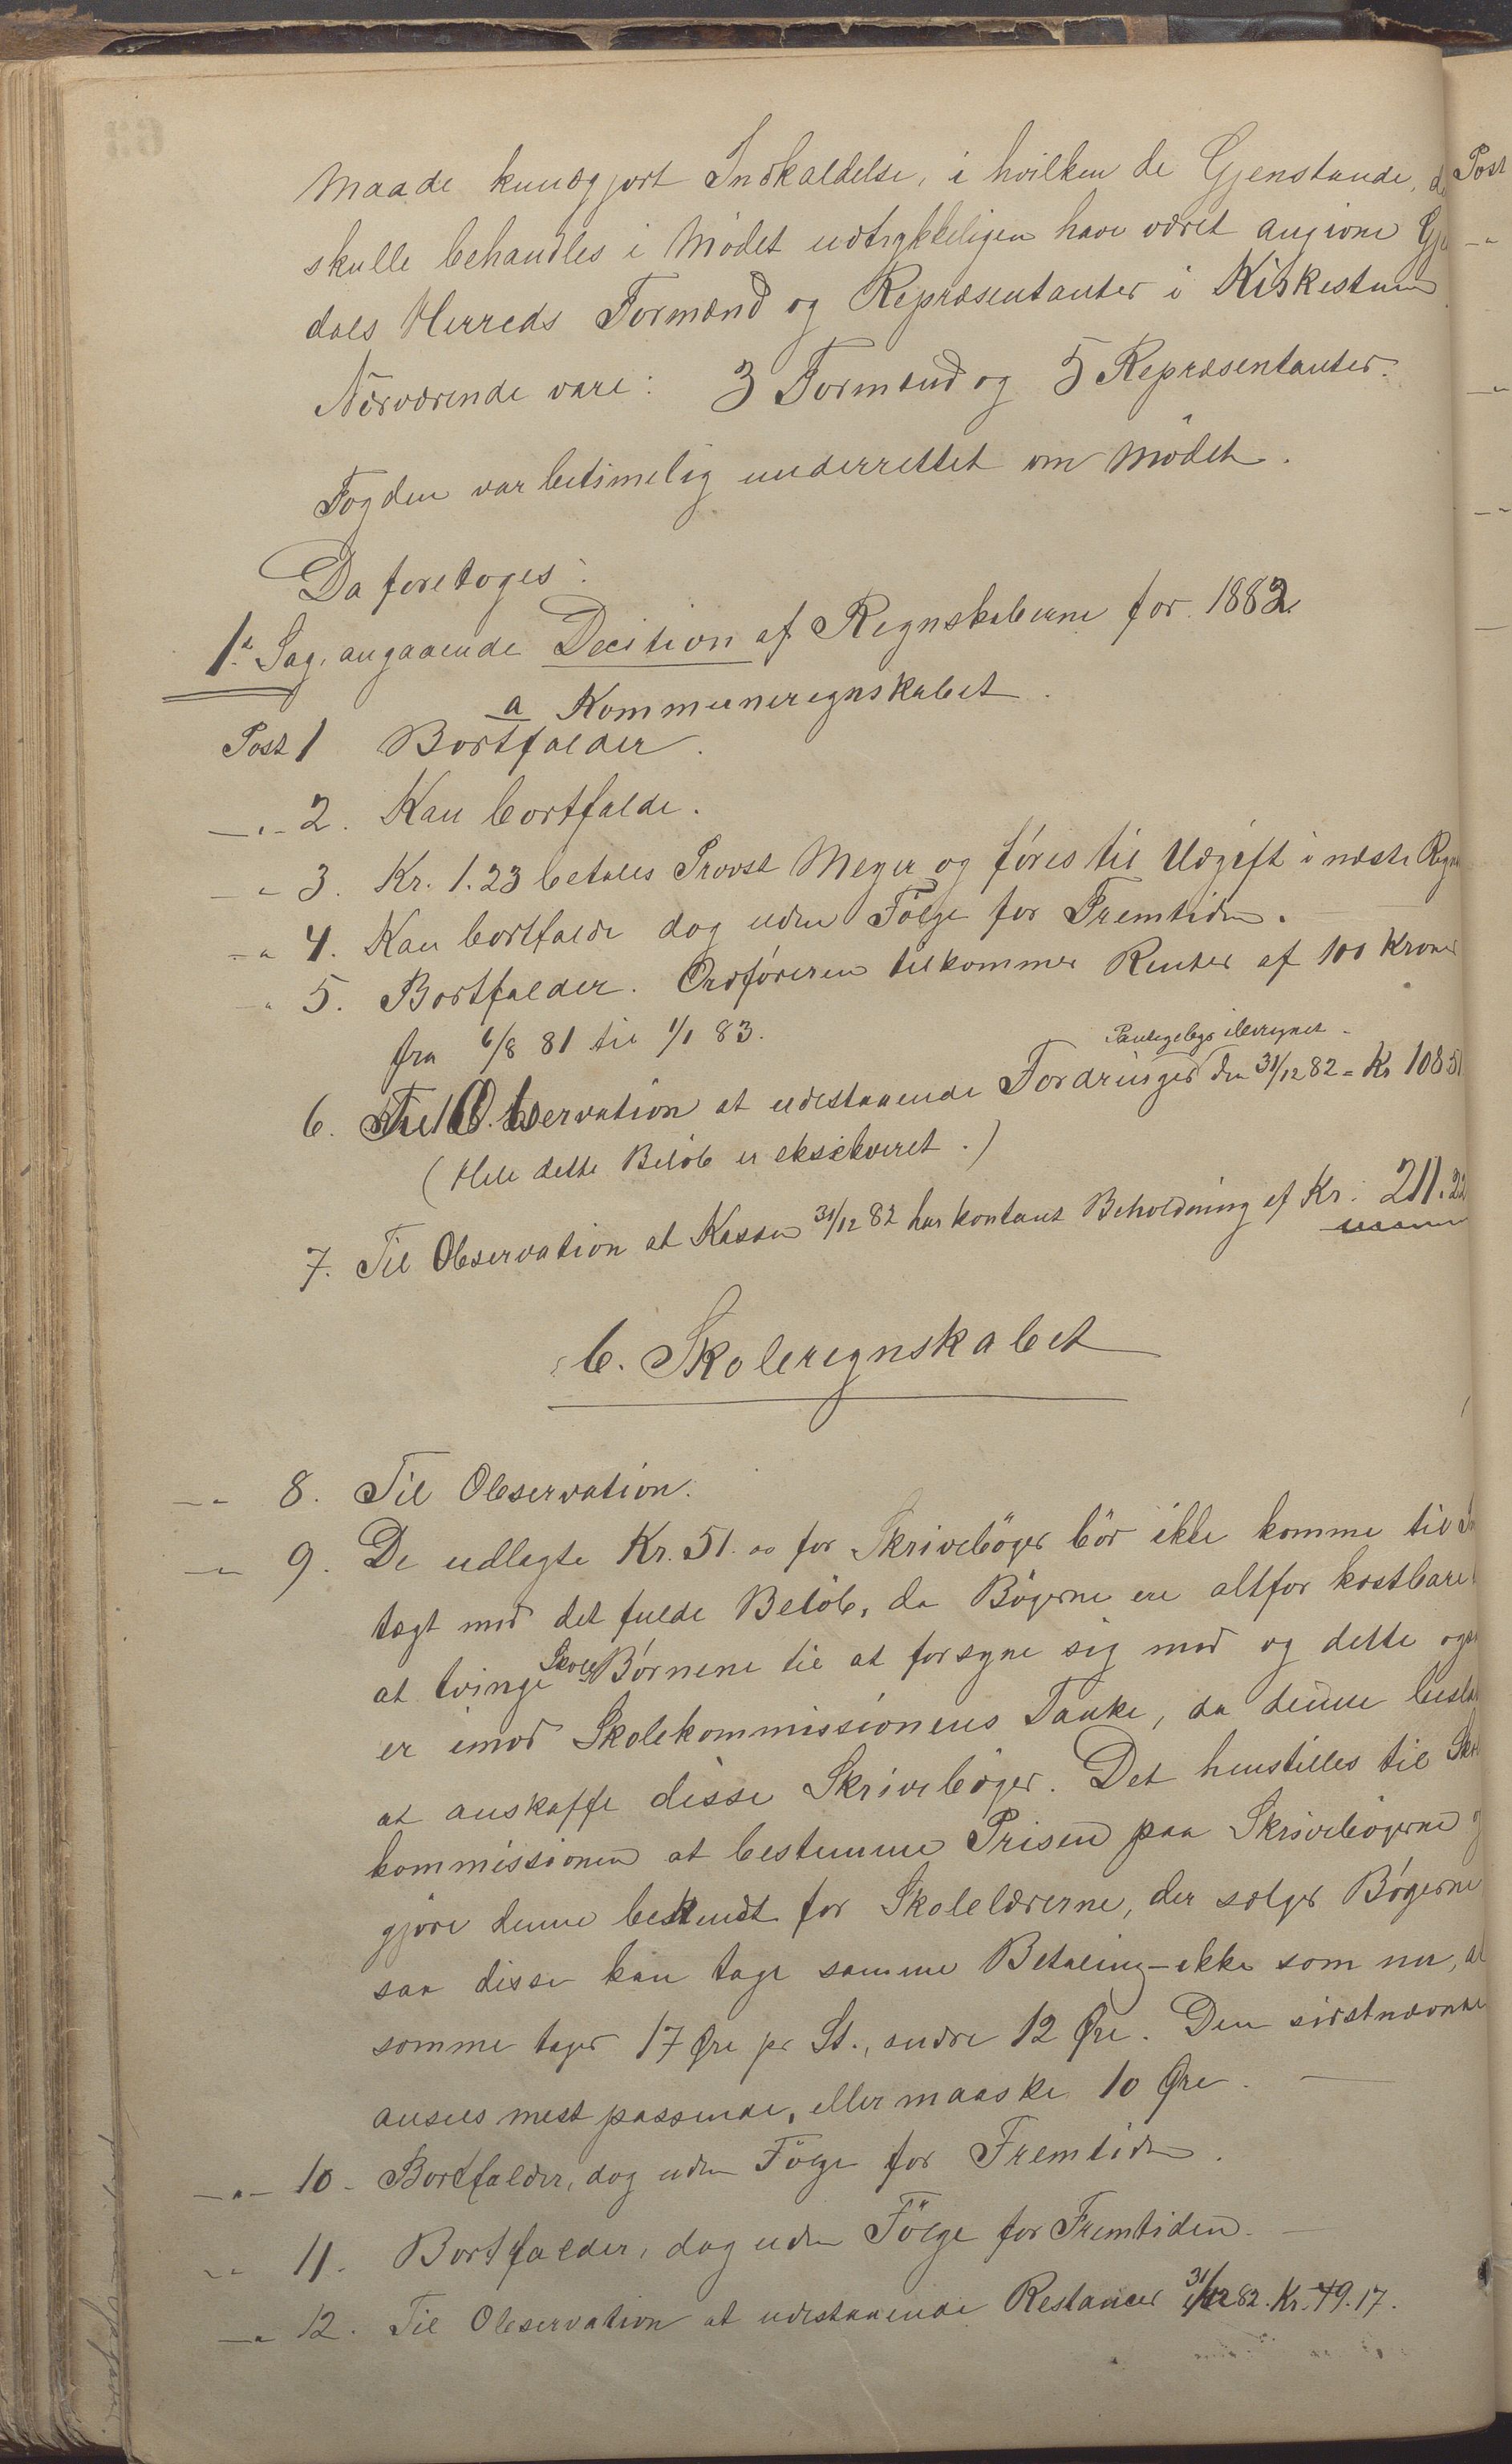 maade kundgjort Indkaldelse, i hvilken de Gjenstande, d
skulle behandles i Mödet udtrykkeligen have været angivne Gje
dals Herreds Formænd og Repræsentanter i Kirkestuen
Nærværende vare: 3 Formænd og 5 Repræsentanter.
Fogden var betimelig underrettet om Mödet.
Da foretoges:
1ste Sag, angaaende Decition af Regnskaberne for 1882
a Kommuneregnskabet.
Post 1 Bortfalder.
—"— 2. Kan bortfalde.
—"— 3. Kr. 1.23 betales Provst Meyer og föres til Udgift i næste Regn
—"— 4. Kan bortfalde dog uden Fölge for Fremtiden.
—"— 5. Bortfalder. Ordföreren tilkommer Renter af 100 Kroner
fra 6/8 81 til 1/1 83.
6. Til Observation at udestaaende Fordringer den 31/12 82 = Kr 1085
(Hele dette Belöb er eksekveret.)
7. Til Observation at Kassen 31/12 82 har kontant Beholdning af Kr. 211.22
b. Skoleregnskabet
—"— 8. Til Observation.
—"— 9. De udlagte Kr. 51.00 for Skriveböger bör ikke komme til In
tægt med det fulde Belöb, da Bögerne ere altfor kostbare
at tvinge Skole Börnene til at forsyne sig med og dette ogsaa
er imod Skolekommissionens Tanke, da denne beslut
at anskaffe disse Skriveböger. Det henstilles til Skole
kommissionen at bestemme Prisen paa Skrivebögerne og
gjöre denne bekendt for Skolelærerne, der sælger Bögerne
saa disse kan tage samme Betaling – ikke som nu, at
somme tager 17 Øre pr St., andre 12 Øre. Den sidstnævnte
ansees mest passende, eller maaske 10 Øre.
—"— 10. Bortfalder, dog uden Fölge for Fremtiden.
—"— 11. Bortfalder, dog uden Fölge for Fremtiden.
—"— 12. Til Observation at udestaaende Restancer 31/12 82. Kr. 49.17.
Post